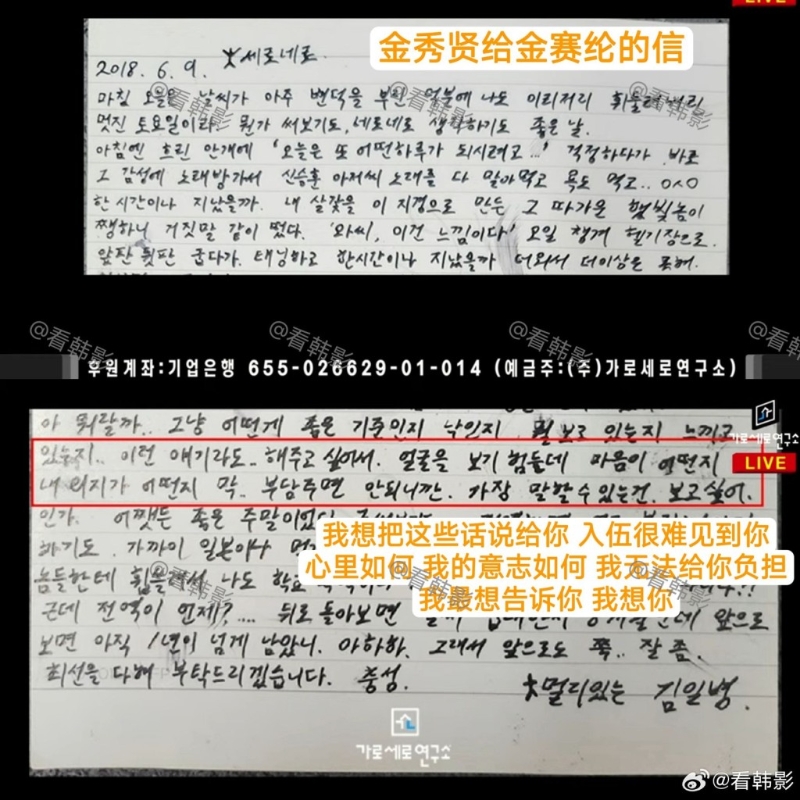 LIVE
金秀贤给金赛纶的信
2018. 6. 9. 세로네로
마침 오늘은 날씨가 아주 변덕을 부린 덕분에 나도 이리저리 휘둘려버린
멋진 토요일이라. 뭔가 써보기도, 네로네로 생각하기도 좋은 날.
아침엔 흐린 안개에 '오늘은 또 어떤하루가 되시려고...' 걱정하다가 바로
그 감성에 노래방가서 신승훈 아저씨 노래를 다 말아먹고 욕도 먹고.. 0^0
한시간이나 지났을까. 내 살갗을 이 지경으로 만든 그 따가운 햇빛놈이
쨍하니 거짓말 같이 떴다. '와씨, 이건 느낌이다' 오일 챙겨 헬기장으로.
앞판 뒷판 굽다가. 태닝하고 한시간이나 지났을까 더와서 더이상은 못해.
@看韩影
@看韩影
@看韩影
@看韩影
후원계좌:기업은행 655-026629-01-014 (예금주:(주)가로세로연구소)
아 뭐랄까.. 그냥 어떤게 좋은 기준인지 낙인지 뭘보고 있는지 느끼고
가로세로연구소
LIVE
있는지.. 이런 얘기라도.. 해주고 싶어서. 얼굴을 보기 힘든데 마음이 어떤지
내 의지가 어떤지 막.. 부담주면 안되니깐. 가장 말할수있는건. 보고싶어.
인가. 어쨌든 좋은 주말이었
我想把这些话说给你 入伍很难见到你
하기도. 가까이 일본이나
心里如何 我的意志如何 我无法给你负担
놈들한테 휩쓸려서 나도 학교
我最想告诉你 我想你
근데 전역이 언제?.... 뒤로 돌아보면 앞으로
보면 아직 1년이 넘게 남았니. 아하하. 그래서 앞으로도 쭉.. 잘 좀.
최선을 다해 부탁드리겠습니다. 충성.
멀리있는 김일병.
@看韩影
@看韩影
가로세로연구소
@看韩影